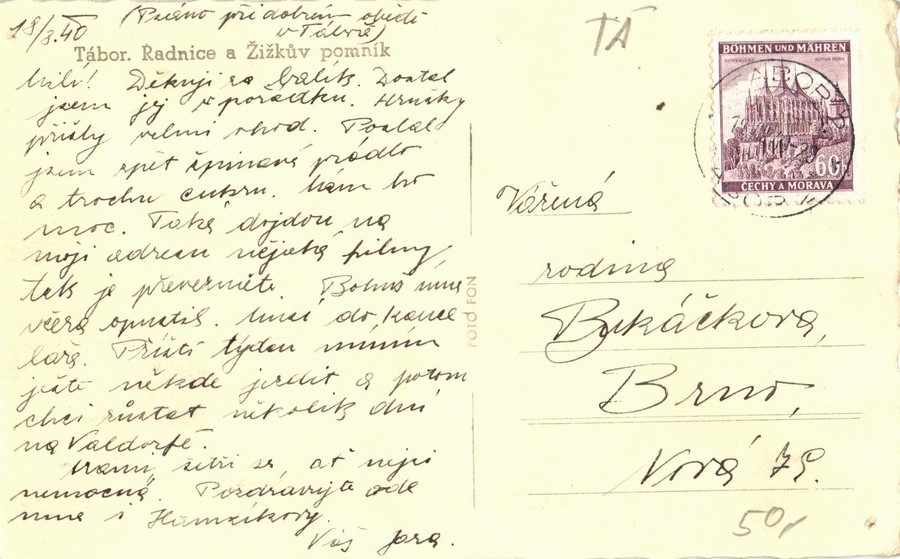 18/3.40 (Psáno při dobrém obědě
v Táboře)
TÁ
Tábor. Radnice a Žižkův pomník
Milí! Děkuji za balík. Dostal
jsem jej v pořádku. Hrušky
přišly velmi vhod. Poslal
jsem zpět špinavé prádlo
a trochu cukru. Mám ho
moc. Také dojdou na
moji adresu nějaké filmy,
tak je převezměte. mne
včera opustil. Musí do kance
láře. Příští týden musím
ještě někde jezdit a potom
chci zůstat několik dní
na Valdorfě.
Mami, šetři se, ať nejsi
nemocná. Pozdravujte ode
mne i Hamzíkovy.
Váš Jara.
FOTO FON
BÖHMEN UND MÄHREN
KUTTENBERG KUTNÁ HORA
60h
ČECHY A MORAVA
Vážená
rodina
Bukáčkova,
Brno,
Nová 79.
50